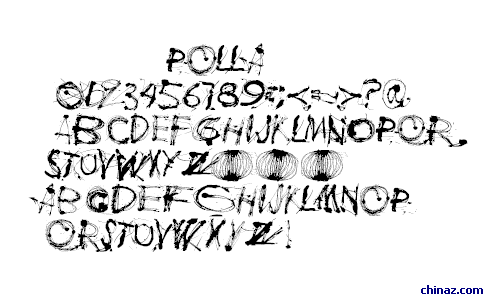 POLLA
0123456789:;<=>?@
ABCDEFGHIJKLMNOPQR
STUVWXYZ
ABCDEFGHIJKLMNOP
QRSTUVWXYZ
chinaz.com